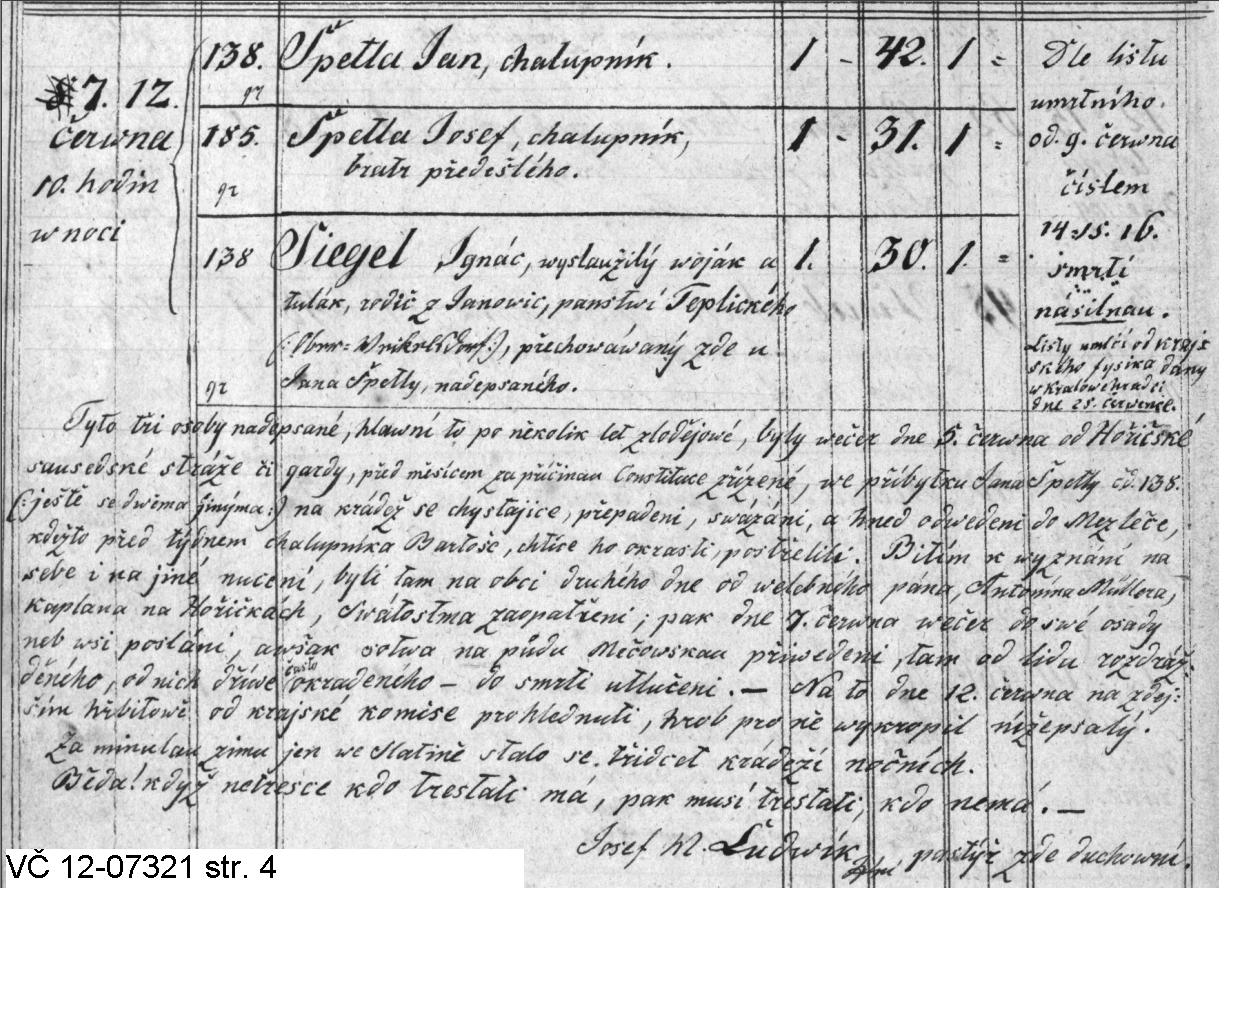 138. Špetla Jan, chalupník. 1 - 42. 1 = Dle listu
7. 12. umrtního.
června 185. Špetla Josef, chalupník, 1 - 31. 1 = od. 9. června
10. hodin bratr předešlého. číslem
w noci 14. 15. 16.
138 Siegel Ignác, wyslaužilý woják a 1. 30. 1. = smrtí
tulák, rodič z Janowic, panstwí Teplického násilnau.
(:Ober=Wekelsdorf:), přechowáwaný zde u Listy umrlčí od kraj
Jana Špetly, nadepsaného. ského fysika dány
w Králowéhradci
dne 25. července.
Tyto tři osoby nadepsané, hlawní to po několik let zlodějowé, byly wečer dne 5. června od Hořičské
sausedské stráže či gardy, před měsícem za příčinau Constituce zřízené, we příbytku Jana Špetly čd. 138.
(:ještě se dwěma jinýma:) na krádež se chystajíce, přepadeni, swázáni, a hned odwedeni do Mezleče,
kdežto před týdnem chalupníka Bartoše, chtíce ho okrasti, postřelili. Bitím k wyznání na
sebe i na jiné nuceni, byli tam na obci druhého dne od welebného pána, Antonína Müllera,
kaplana na Hořičkách, Swátostma zaopatřeni; pak dne 7. června wečer do swé osady
neb wsi posláni, awšak sotwa na půdu Mečowskau přiwedeni, tam od lidu rozdráž-
děného, od nich dříwe často okradeného – do smrti utlučeni. – Na to dne 12. června na zdej:
ším hřbitowě od krajské komise prohlednuti, hrob pro ně wykropil nížepsaný.
Za minulau zimu jen we Slatině stalo se třidcet krádeží nočních.
Běda! když netresce kdo trestati má, pak musí trestati, kdo nemá. –
Josef M. Ludwík pastýř zde duchowní.
VČ 12-07321 str. 4